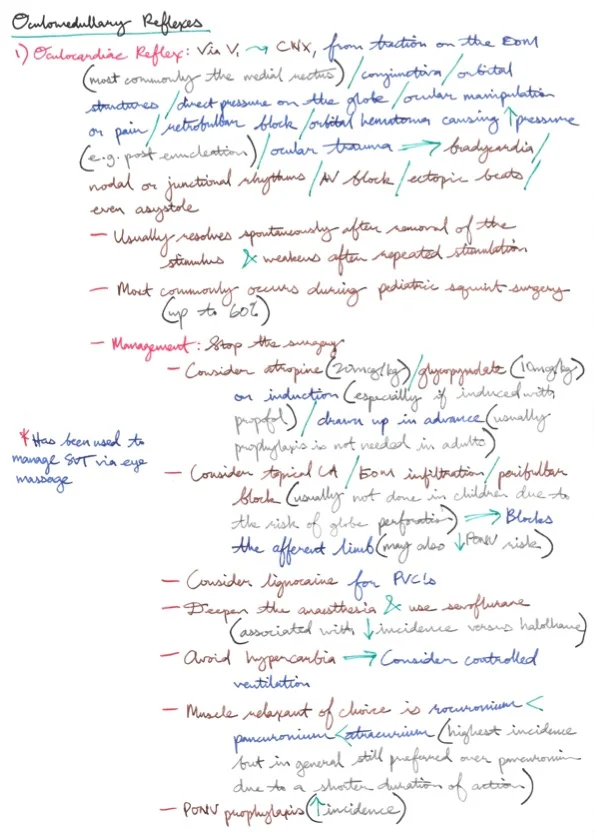 Oculomedullary Reflexes
1) Oculocardiac Reflex: Via V₁ ⇝ CNX, from traction on the EOM
(most commonly the medial rectus) / conjunctiva / orbital
structures / direct pressure on the globe / ocular manipulation
or pain / retrobulbar block / orbital hematoma causing ↑ pressure
(e.g. post enucleation) / ocular trauma ⇒ bradycardia /
nodal or junctional rhythms / AV block / ectopic beats /
even asystole
— Usually resolves spontaneously after removal of the
stimulus & weakens after repeated stimulation
— Most commonly occurs during pediatric squint surgery
(up to 60%)
— Management: Stop the surgery
— Consider atropine (20mcg/kg) / glycopyrrolate (10mcg/kg)
on induction (especially if induced with
propofol) / drawn up in advance (usually
prophylaxis is not needed in adults)
* Has been used to
manage SVT via eye
massage
— Consider topical LA / EOM infiltration / peribulbar
block (usually not done in children due to
the risk of globe perforation) ⇒ Blocks
the afferent limb (may also ↓ PONV risk)
— Consider lignocaine for PVCs
— Deepen the anaesthesia & use sevoflurane
(associated with ↓ incidence versus halothane)
— Avoid hypercarbia ⇒ Consider controlled
ventilation
— Muscle relaxant of choice is rocuronium <
pancuronium < atracurium (highest incidence
but in general still preferred over pancuronium
due to a shorter duration of action)
— PONV prophylaxis (↑ incidence)